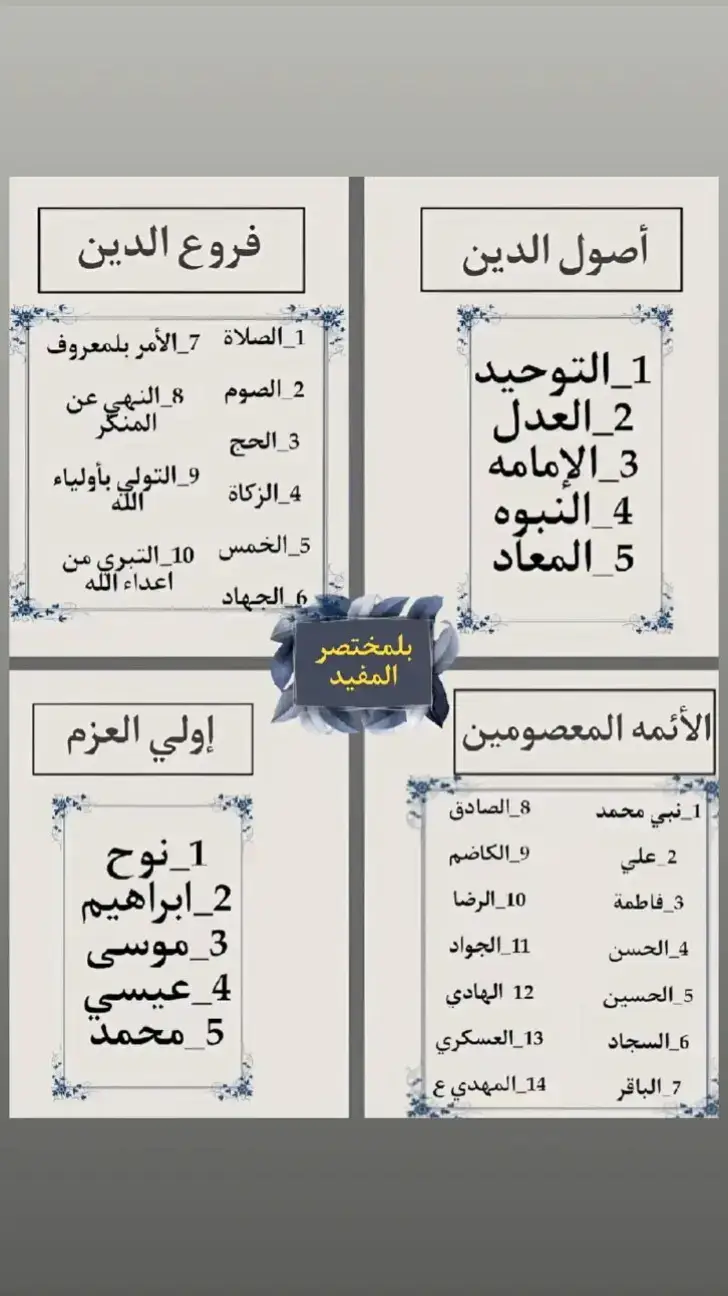 أصول الدين
1_التوحيد
2_العدل
3_الإمامه
4_النبوه
5_المعاد
فروع الدين
1_الصلاة
2_الصوم
3_الحج
4_الزكاة
5_الخمس
6_الجهاد
7_الأمر بلمعروف
8_النهي عن
المنكر
9_التولي بأولياء
الله
10_التبري من
اعداء الله
بلمختصر
المفيد
الأئمه المعصومين
1_نبي محمد
2_علي
3_فاطمة
4_الحسن
5_الحسين
6_السجاد
7_الباقر
8_الصادق
9_الكاضم
10_الرضا
11_الجواد
12 الهادي
13_العسكري
14_المهدي ع
إولي العزم
1_نوح
2_ابراهيم
3_موسى
4_عيسي
5_محمد